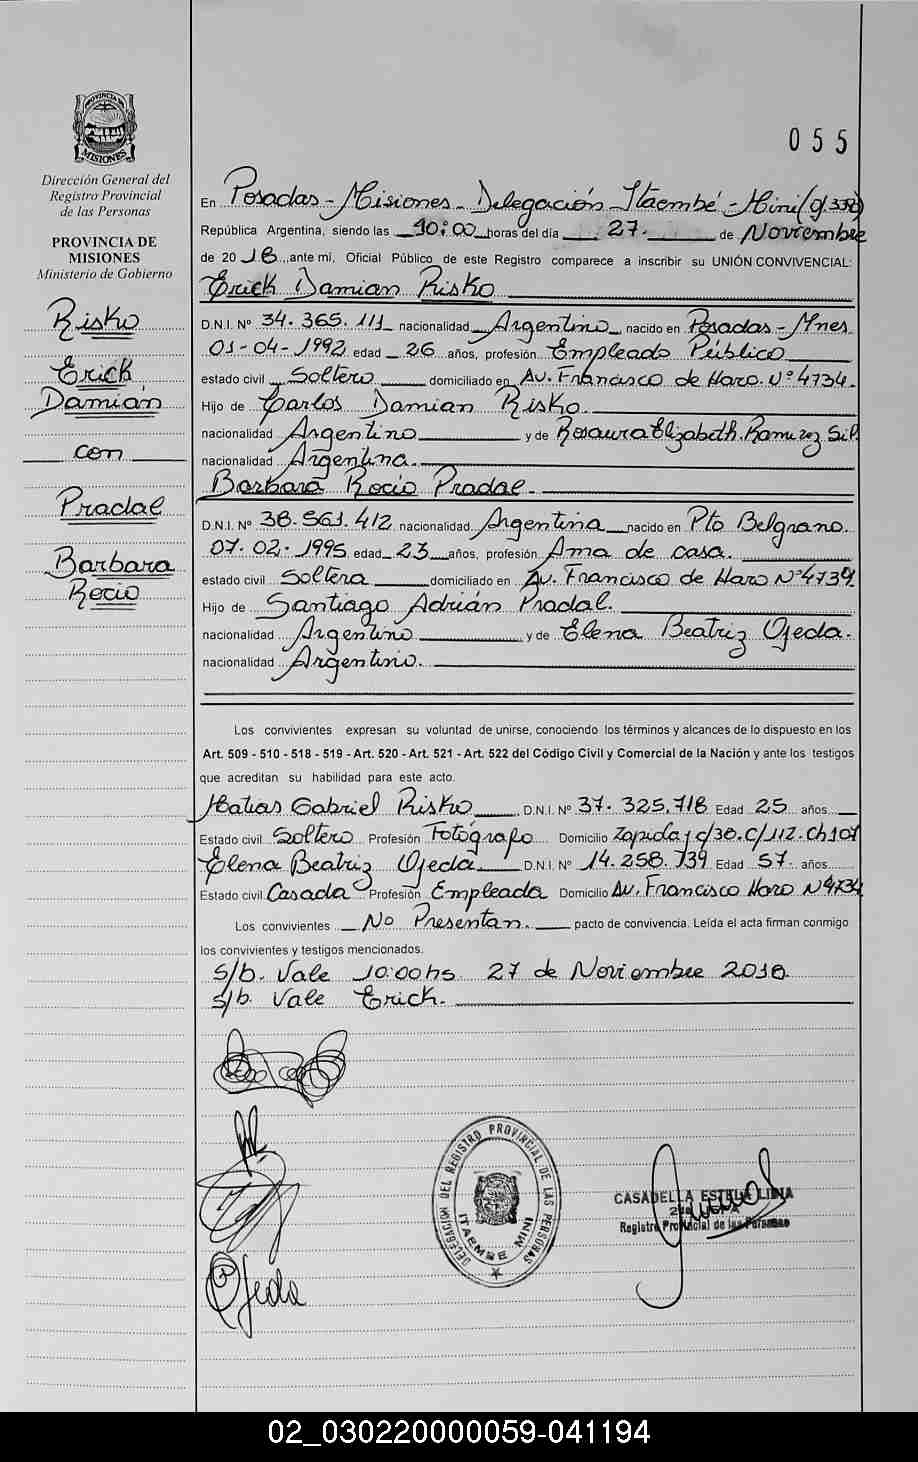 055
PROVINCIA
MISIONES
Dirección General del
Registro Provincial
de las Personas
PROVINCIA DE
MISIONES
Ministerio de Gobierno
Risko
Erick
Damián
con
Pradal
Barbara
Rocio
En Posadas - Misiones - Delegación Itaembé - Mini (Of. 332)
República Argentina, siendo las 10:00 horas del día 27. de Noviembre
de 2018 ante mi, Oficial Público de este Registro comparece a inscribir su UNIÓN CONVIVENCIAL:
Erick Damian Risko
D.N.I. Nº 34.365.111 nacionalidad Argentino nacido en Posadas - Mnes
01-04-1992 edad 26 años, profesión Empleado Público
estado civil Soltero domiciliado en Av. Francisco de Haro. Nº 4734.
Hijo de Carlos Damian Risko.
nacionalidad Argentino y de Rosaura Elizabeth. Ramirez Sil.
nacionalidad Argentina.
Barbara Rocio Pradal.
D.N.I. Nº 38.561.412 nacionalidad Argentina nacido en Pto Belgrano.
07-02-1995 edad 23 años, profesión Ama de casa.
estado civil Soltera domiciliado en Av. Francisco de Haro Nº 4734.
Hijo de Santiago Adrián Pradal.
nacionalidad Argentino y de Elena Beatriz Ojeda.
nacionalidad Argentino.
Los convivientes expresan su voluntad de unirse, conociendo los términos y alcances de lo dispuesto en los
Art. 509 - 510 - 518 - 519 - Art. 520 - Art. 521 - Art. 522 del Código Civil y Comercial de la Nación y ante los testigos
que acreditan su habilidad para este acto.
Matias Gabriel Risko D.N.I. Nº 37.325.718 Edad 25 años
Estado civil Soltero Profesión Fotógrafo Domicilio Zapiola y c/30. C/112. Ch 107
Elena Beatriz Ojeda D.N.I. Nº 14.258.739 Edad 57. años
Estado civil Casada Profesión Empleada Domicilio Av. Francisco Haro Nº 4734
Los convivientes No Presentan. pacto de convivencia. Leída el acta firman conmigo
los convivientes y testigos mencionados.
S/b. Vale 10:00 hs 27 de Noviembre 2018
s/b. Vale Erick.
Ojeda
DELEGACION DEL REGISTRO PROVINCIAL DE LAS PERSONAS
ITAEMBE MINI
CASADELLA ESTELA LIDIA
Registro Provincial de las Personas
02_030220000059-041194